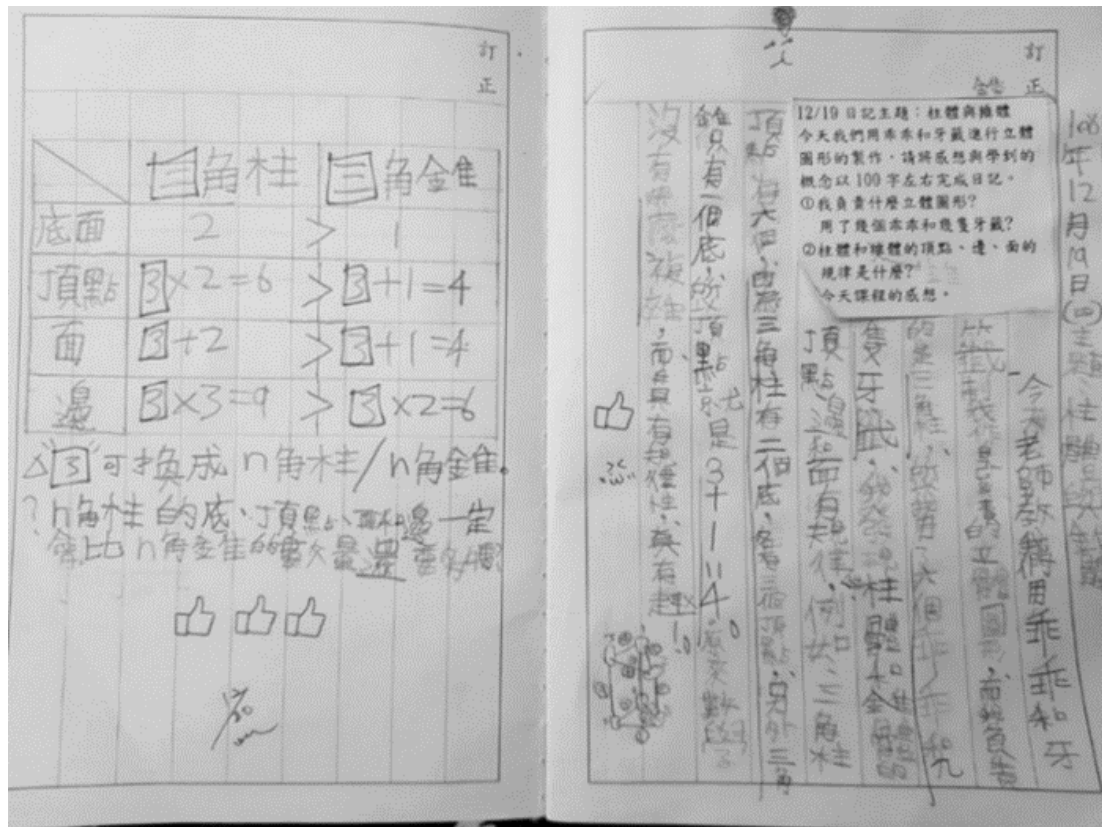 訂
正
三角柱 三角錐
底面 2 > 1
頂點 3×2=6 > 3+1=4
面 3+2 > 3+1=4
邊 3×3=9 > 3×2=6
△ 3 可換成 n角柱/n角錐。
? n角柱的底、頂點、面和邊一定
會比n角錐的
訂
正
12/19 日記主題：柱體與錐體
今天我們用乖乖和牙籤進行立體
圖形的製作，請將感想與學到的
概念以 100 字左右完成日記。
①我負責什麼立體圖形?
用了幾個乖乖和幾隻牙籤?
②柱體和錐體的頂點、邊、面的
規律是什麼?
今天課程的感想。
108年12月19日(四)主題：柱體與錐體
今天老師教我們用乖乖和牙
籤製作立體圖形，而我負責
的是三角柱，總共用了六個乖乖和九
隻牙籤，我發現柱體和錐體的
頂點、邊和面有規律，例如：三角柱
頂點有六個，因為三角柱有二個底，各有三個頂點，另外三角
錐只有一個底，所以頂點就是3+1=4。原來數學
沒有那麼複雜，而且具有規律性，真有趣!